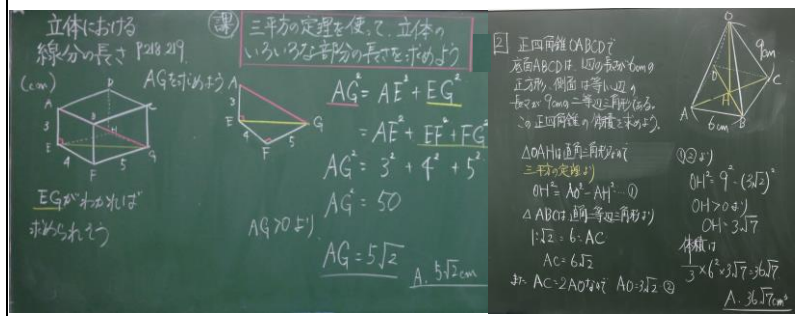 立体における
線分の長さ P218.219.
課
三平方の定理を使って、立体の
いろいろな部分の長さを求めよう
(cm)
AGを求めよう
A
D
B
C
3
E
H
4
F
5
G
A
3
E
G
4
F
5
EGがわかれば
求められそう
AG² = AE² + EG²
= AE² + EF² + FG²
AG² = 3² + 4² + 5²
AG² = 50
AG>0より
AG = 5√2
A. 5√2cm
2 正四角錐OABCDで
底面ABCDは、1辺の長さが6cmの
正方形、側面は等しい辺の
長さが9cmの二等辺三角形である。
この正四角錐の体積を求めよう。
O
9cm
D
C
H
A
6cm
B
△OAHは直角三角形なので
三平方の定理より
OH² = AO² - AH² …①
△ABCは直角二等辺三角形より
1:√2 = 6:AC
AC = 6√2
また AC = 2AOなので AO = 3√2 …②
①②より
OH² = 9² - (3√2)²
OH>0より
OH = 3√7
体積は
1/3 × 6² × 3√7 = 36√7
A. 36√7cm³